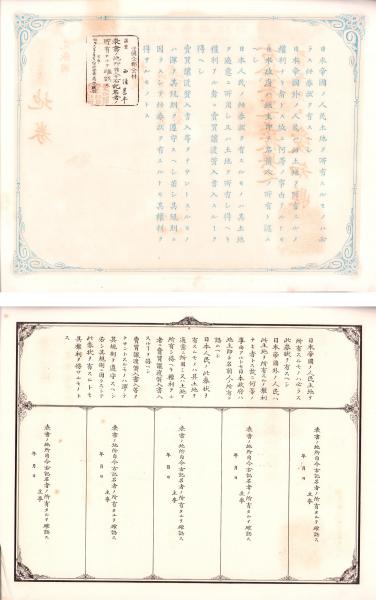 日本帝國ノ人民土地ヲ所有スルモノハ必
ラス此券狀ヲ有スヘシ
日本帝國外ノ人民ハ此土地ヲ所有スルノ
權利ナキ者トス故ニ何等ノ事由アルトモ
日本政府ハ地主即チ名前人ノ所有ト認ム
ヘシ
日本人民ノ此券狀ヲ有スルモノハ其土地
ヲ適意ニ所用シ又ハ土地ヲ所有シ得ヘキ
權利アル者ニ賣買讓渡質入書入スルコト
ヲ得ヘシ
賣買讓渡質入書入等ヲナサントスルモノ
ハ渾テ其規則ヲ遵守スヘシ若シ其規則ニ
因ラスシテ此券狀ヲ有スルトモ其權利ヲ
得サルモノトス
地券
日本帝國ノ人民土地ヲ
所有スルモノハ必ラス
此券狀ヲ有スヘシ
日本帝國外ノ人民ハ
此土地ヲ所有スルノ權利
ナキ者トス故ニ何等ノ
事由アルトモ日本政府ハ
地主即チ名前人ノ所有ト
認ムヘシ
日本人民ノ此券狀ヲ
有スルモノハ其土地ヲ
適意ニ所用シ又ハ土地ヲ
所有シ得ヘキ權利アル
者ニ賣買讓渡質入書入
スルコトヲ得ヘシ
賣買讓渡質入書入等ヲ
ナサントスルモノハ渾テ
其規則ヲ遵守スヘシ
若シ其規則ニ因ラスシテ
此券狀ヲ有スルトモ
其權利ヲ得サルモノト
ス
表書ノ地所自今右記名者ノ所有タルヲ確認ス
年 月 日
表書ノ地所自今右記名者ノ所有タルヲ確認ス
年 月 日
表書ノ地所自今右記名者ノ所有タルヲ確認ス
年 月 日
表書ノ地所自今右記名者ノ所有タルヲ確認ス
年 月 日
表書ノ地所自今右記名者ノ所有タルヲ確認ス
年 月 日